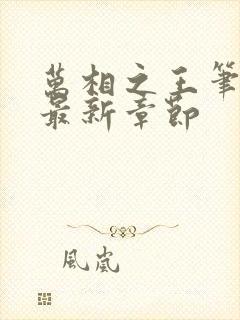 萬相之王筆
最新章節
風嵐